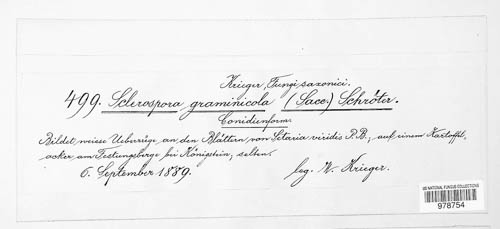 Krieger, Fungi saxonici.
499. Sclerospora graminicola (Sacc.) Schröter.
Conidienform.
Bildet weisse Ueberzüge an den Blättern von Setaria viridis P. B., auf einem Kartoffel-
acker am Festungsberge bei Königstein, selten.
6. September 1889. leg. W. Krieger.
US NATIONAL FUNGUS COLLECTIONS
978754